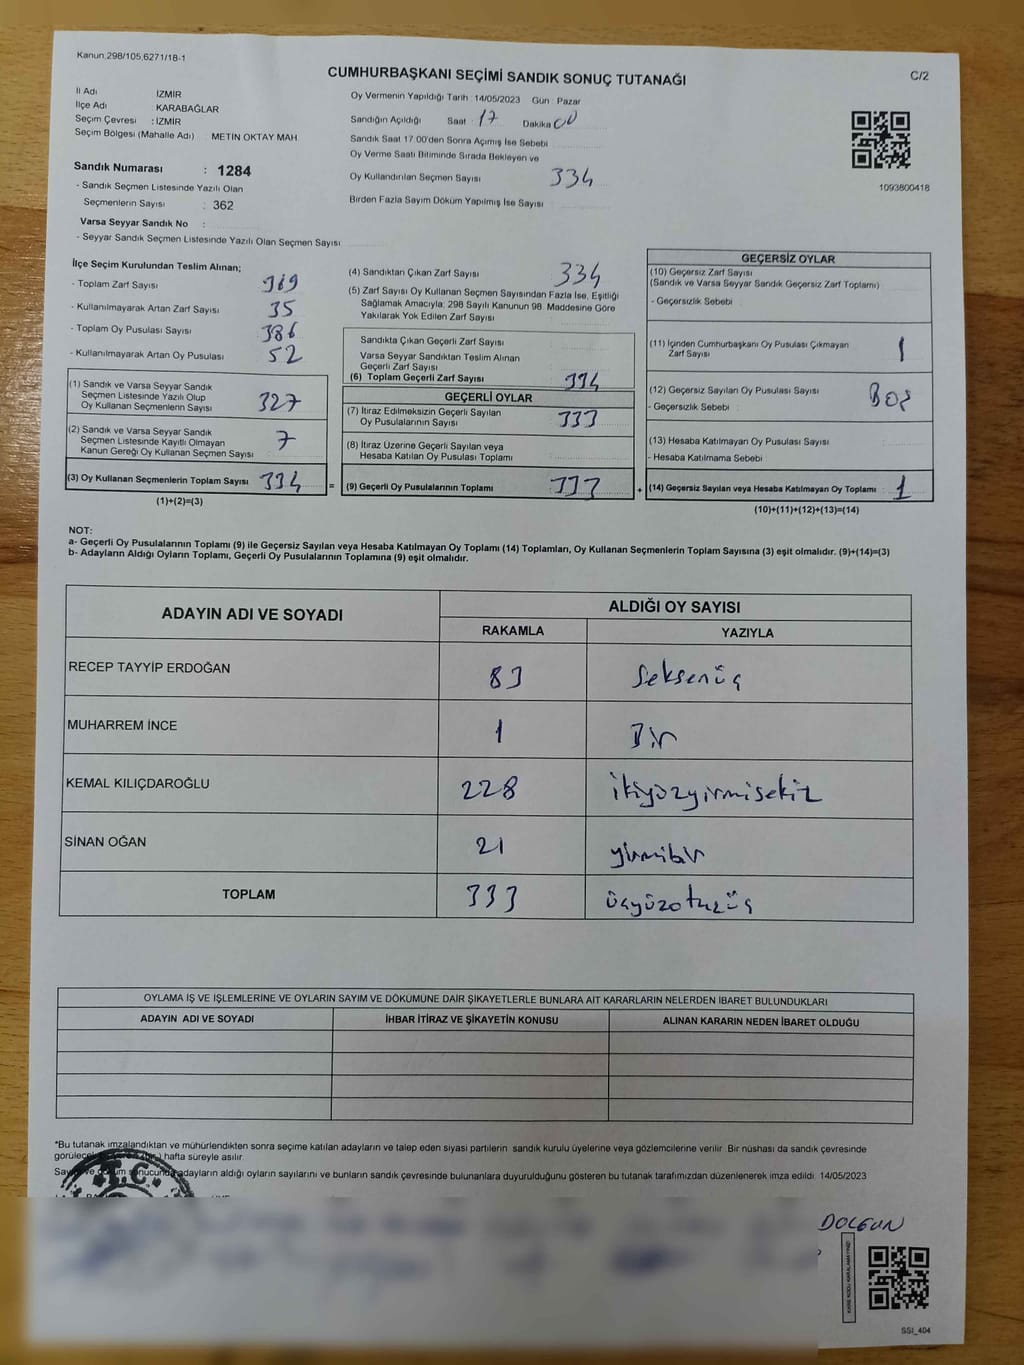 Kanun,298/105,6271/18-1
C/2
CUMHURBAŞKANI SEÇİMİ SANDIK SONUÇ TUTANAĞI
İl Adı İZMİR
İlçe Adı KARABAĞLAR
Seçim Çevresi : İZMİR
Seçim Bölgesi (Mahalle Adı) : METİN OKTAY MAH.
Oy Vermenin Yapıldığı Tarih :14/05/2023 Gün : Pazar
Sandığın Açıldığı Saat : 17 Dakika 00
Sandık Saat 17:00'den Sonra Açımış İse Sebebi
Oy Verme Saati Bitiminde Sırada Bekleyen ve
Oy Kullandırılan Seçmen Sayısı 334
Birden Fazla Sayım Döküm Yapılmış İse Sayısı
1093800418
Sandık Numarası : 1284
- Sandık Seçmen Listesinde Yazılı Olan
Seçmenlerin Sayısı : 362
Varsa Seyyar Sandık No :
- Seyyar Sandık Seçmen Listesinde Yazılı Olan Seçmen Sayısı
İlçe Seçim Kurulundan Teslim Alınan;
- Toplam Zarf Sayısı 369
- Kullanılmayarak Artan Zarf Sayısı 35
- Toplam Oy Pusulası Sayısı 386
- Kullanılmayarak Artan Oy Pusulası 52
(1) Sandık ve Varsa Seyyar Sandık
Seçmen Listesinde Yazılı Olup
Oy Kullanan Seçmenlerin Sayısı 327
(2) Sandık ve Varsa Seyyar Sandık
Seçmen Listesinde Kayıtlı Olmayan
Kanun Gereği Oy Kullanan Seçmen Sayısı 7
(3) Oy Kullanan Seçmenlerin Toplam Sayısı 334 =
(1)+(2)=(3)
(4) Sandıktan Çıkan Zarf Sayısı 334
(5) Zarf Sayısı Oy Kullanan Seçmen Sayısından Fazla İse, Eşitliği
Sağlamak Amacıyla; 298 Sayılı Kanunun 98. Maddesine Göre
Yakılarak Yok Edilen Zarf Sayısı
Sandıkta Çıkan Geçerli Zarf Sayısı
Varsa Seyyar Sandıktan Teslim Alınan
Geçerli Zarf Sayısı
(6) Toplam Geçerli Zarf Sayısı 334
GEÇERLİ OYLAR
(7) İtiraz Edilmeksizin Geçerli Sayılan
Oy Pusulalarının Sayısı 333
(8) İtiraz Üzerine Geçerli Sayılan veya
Hesaba Katılan Oy Pusulası Toplamı
(9) Geçerli Oy Pusulalarının Toplamı 333 +
GEÇERSİZ OYLAR
(10) Geçersiz Zarf Sayısı
(Sandık ve Varsa Seyyar Sandık Geçersiz Zarf Toplamı)
- Geçersizlik Sebebi
(11) İçinden Cumhurbaşkanı Oy Pusulası Çıkmayan
Zarf Sayısı 1
(12) Geçersiz Sayılan Oy Pusulası Sayısı
- Geçersizlik Sebebi Boş
(13) Hesaba Katılmayan Oy Pusulası Sayısı
- Hesaba Katılmama Sebebi
(14) Geçersiz Sayılan veya Hesaba Katılmayan Oy Toplamı 1
(10)+(11)+(12)+(13)=(14)
NOT:
a- Geçerli Oy Pusulalarının Toplamı (9) ile Geçersiz Sayılan veya Hesaba Katılmayan Oy Toplamı (14) Toplamları, Oy Kullanan Seçmenlerin Toplam Sayısına (3) eşit olmalıdır. (9)+(14)=(3)
b- Adayların Aldığı Oyların Toplamı, Geçerli Oy Pusulalarının Toplamına (9) eşit olmalıdır.
ADAYIN ADI VE SOYADI
ALDIĞI OY SAYISI
RAKAMLA YAZIYLA
RECEP TAYYİP ERDOĞAN 83 Seksenüç
MUHARREM İNCE 1 Bir
KEMAL KILIÇDAROĞLU 228 ikiyüzyirmisekiz
SİNAN OĞAN 21 yirmibir
TOPLAM 333 üçyüzotuzüç
OYLAMA İŞ VE İŞLEMLERİNE VE OYLARIN SAYIM VE DÖKÜMÜNE DAİR ŞİKAYETLERLE BUNLARA AİT KARARLARIN NELERDEN İBARET BULUNDUKLARI
ADAYIN ADI VE SOYADI İHBAR İTİRAZ VE ŞİKAYETİN KONUSU ALINAN KARARIN NEDEN İBARET OLDUĞU
*Bu tutanak imzalandıktan ve mühürlendikten sonra seçime katılan adayların ve talep eden siyasi partilerin sandık kurulu üyelerine veya gözlemcilerine verilir. Bir nüshası da sandık çevresinde
hafta süreyle asılır.
adayların aldığı oyların sayılarını ve bunların sandık çevresinde bulunanlara duyurulduğunu gösteren bu tutanak tarafımızdan düzenlenerek imza edildi. 14/05/2023
T.C.
DOLGUN
KARE KODU KARALAMAYINIZ!
SSİ_404